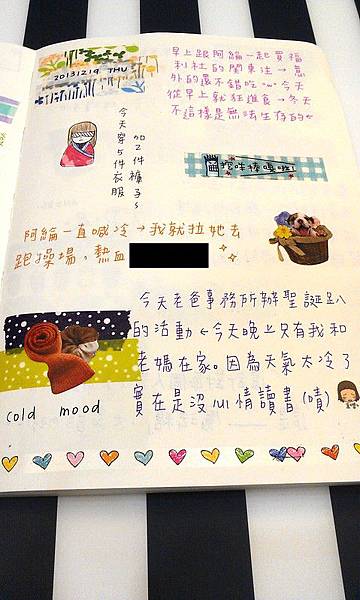 20131219 THU
早上跟阿綸一起買福
利社的關東注→意
外的還不錯吃~今天
從早上就狂進食→冬天
不這樣是無法生存的
今天穿5件衣服
加2件褲子~
阿綸一直喊冷→我就拉她去
跑操場,熱血
今天老爸事務所辦聖誕趴
的活動←今天晚上只有我和
老媽在家。因為天氣太冷了
實在是沒心情讀書(嘖)
cold mood